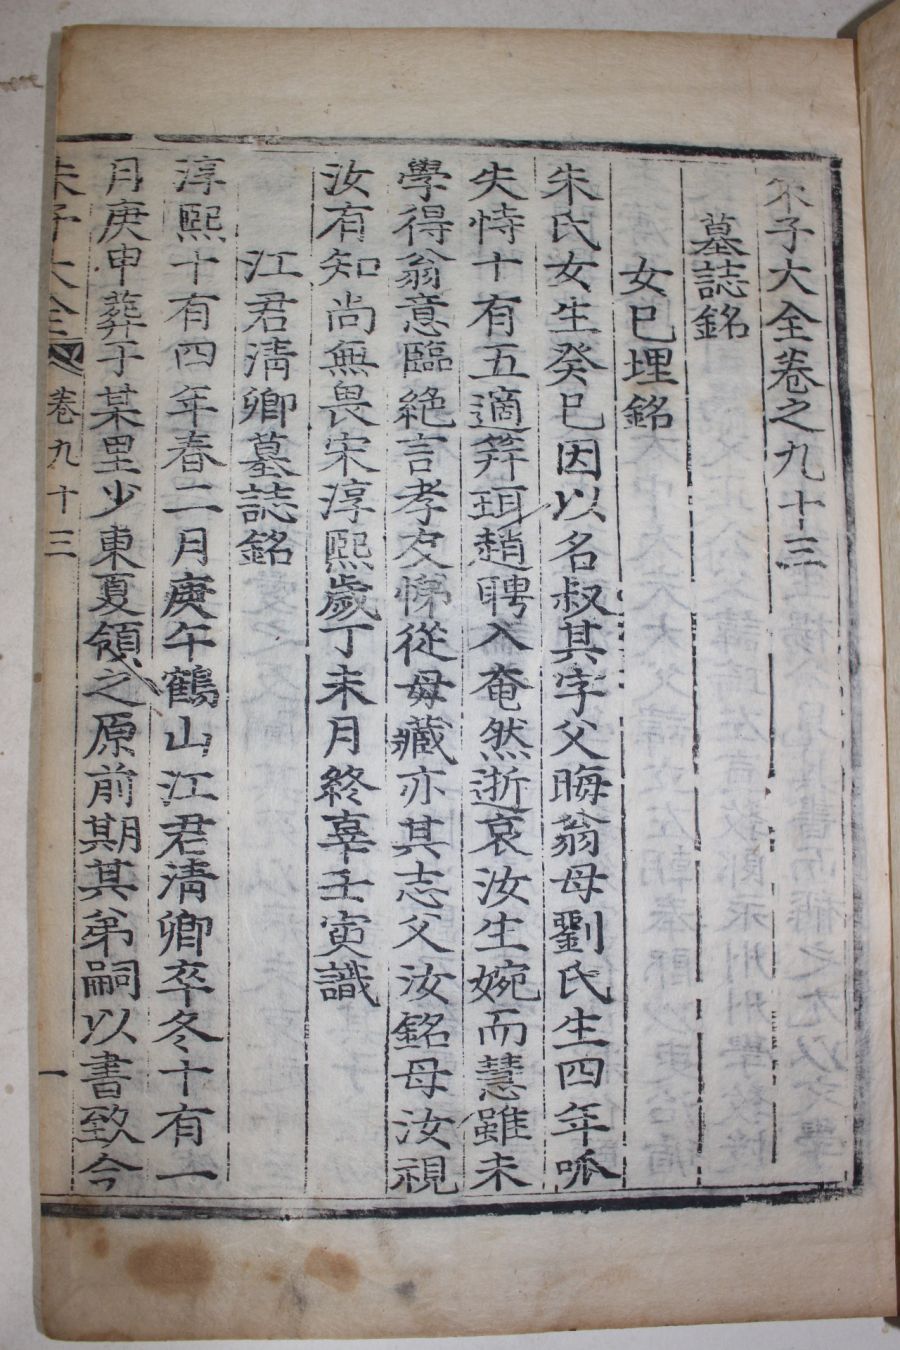 朱子大全卷之九十三
墓誌銘
女巳埋銘
朱氏女生癸巳因以名叔其字父晦翁母劉氏生四年呱
失恃十有五適筓珥趙聘入奄然逝哀汝生婉而慧雖未
學得翁意臨絶言孝友悌從母藏亦其志父汝銘母汝視
汝有知尚無畏宋淳熙歲丁未月終辜壬寅識
江君淸卿墓誌銘
淳熙十有四年春二月庚午鶴山江君淸卿卒冬十有一
月庚申葬于某里少東夏領之原前期其弟嗣以書致今
朱子大全 卷九十三 一